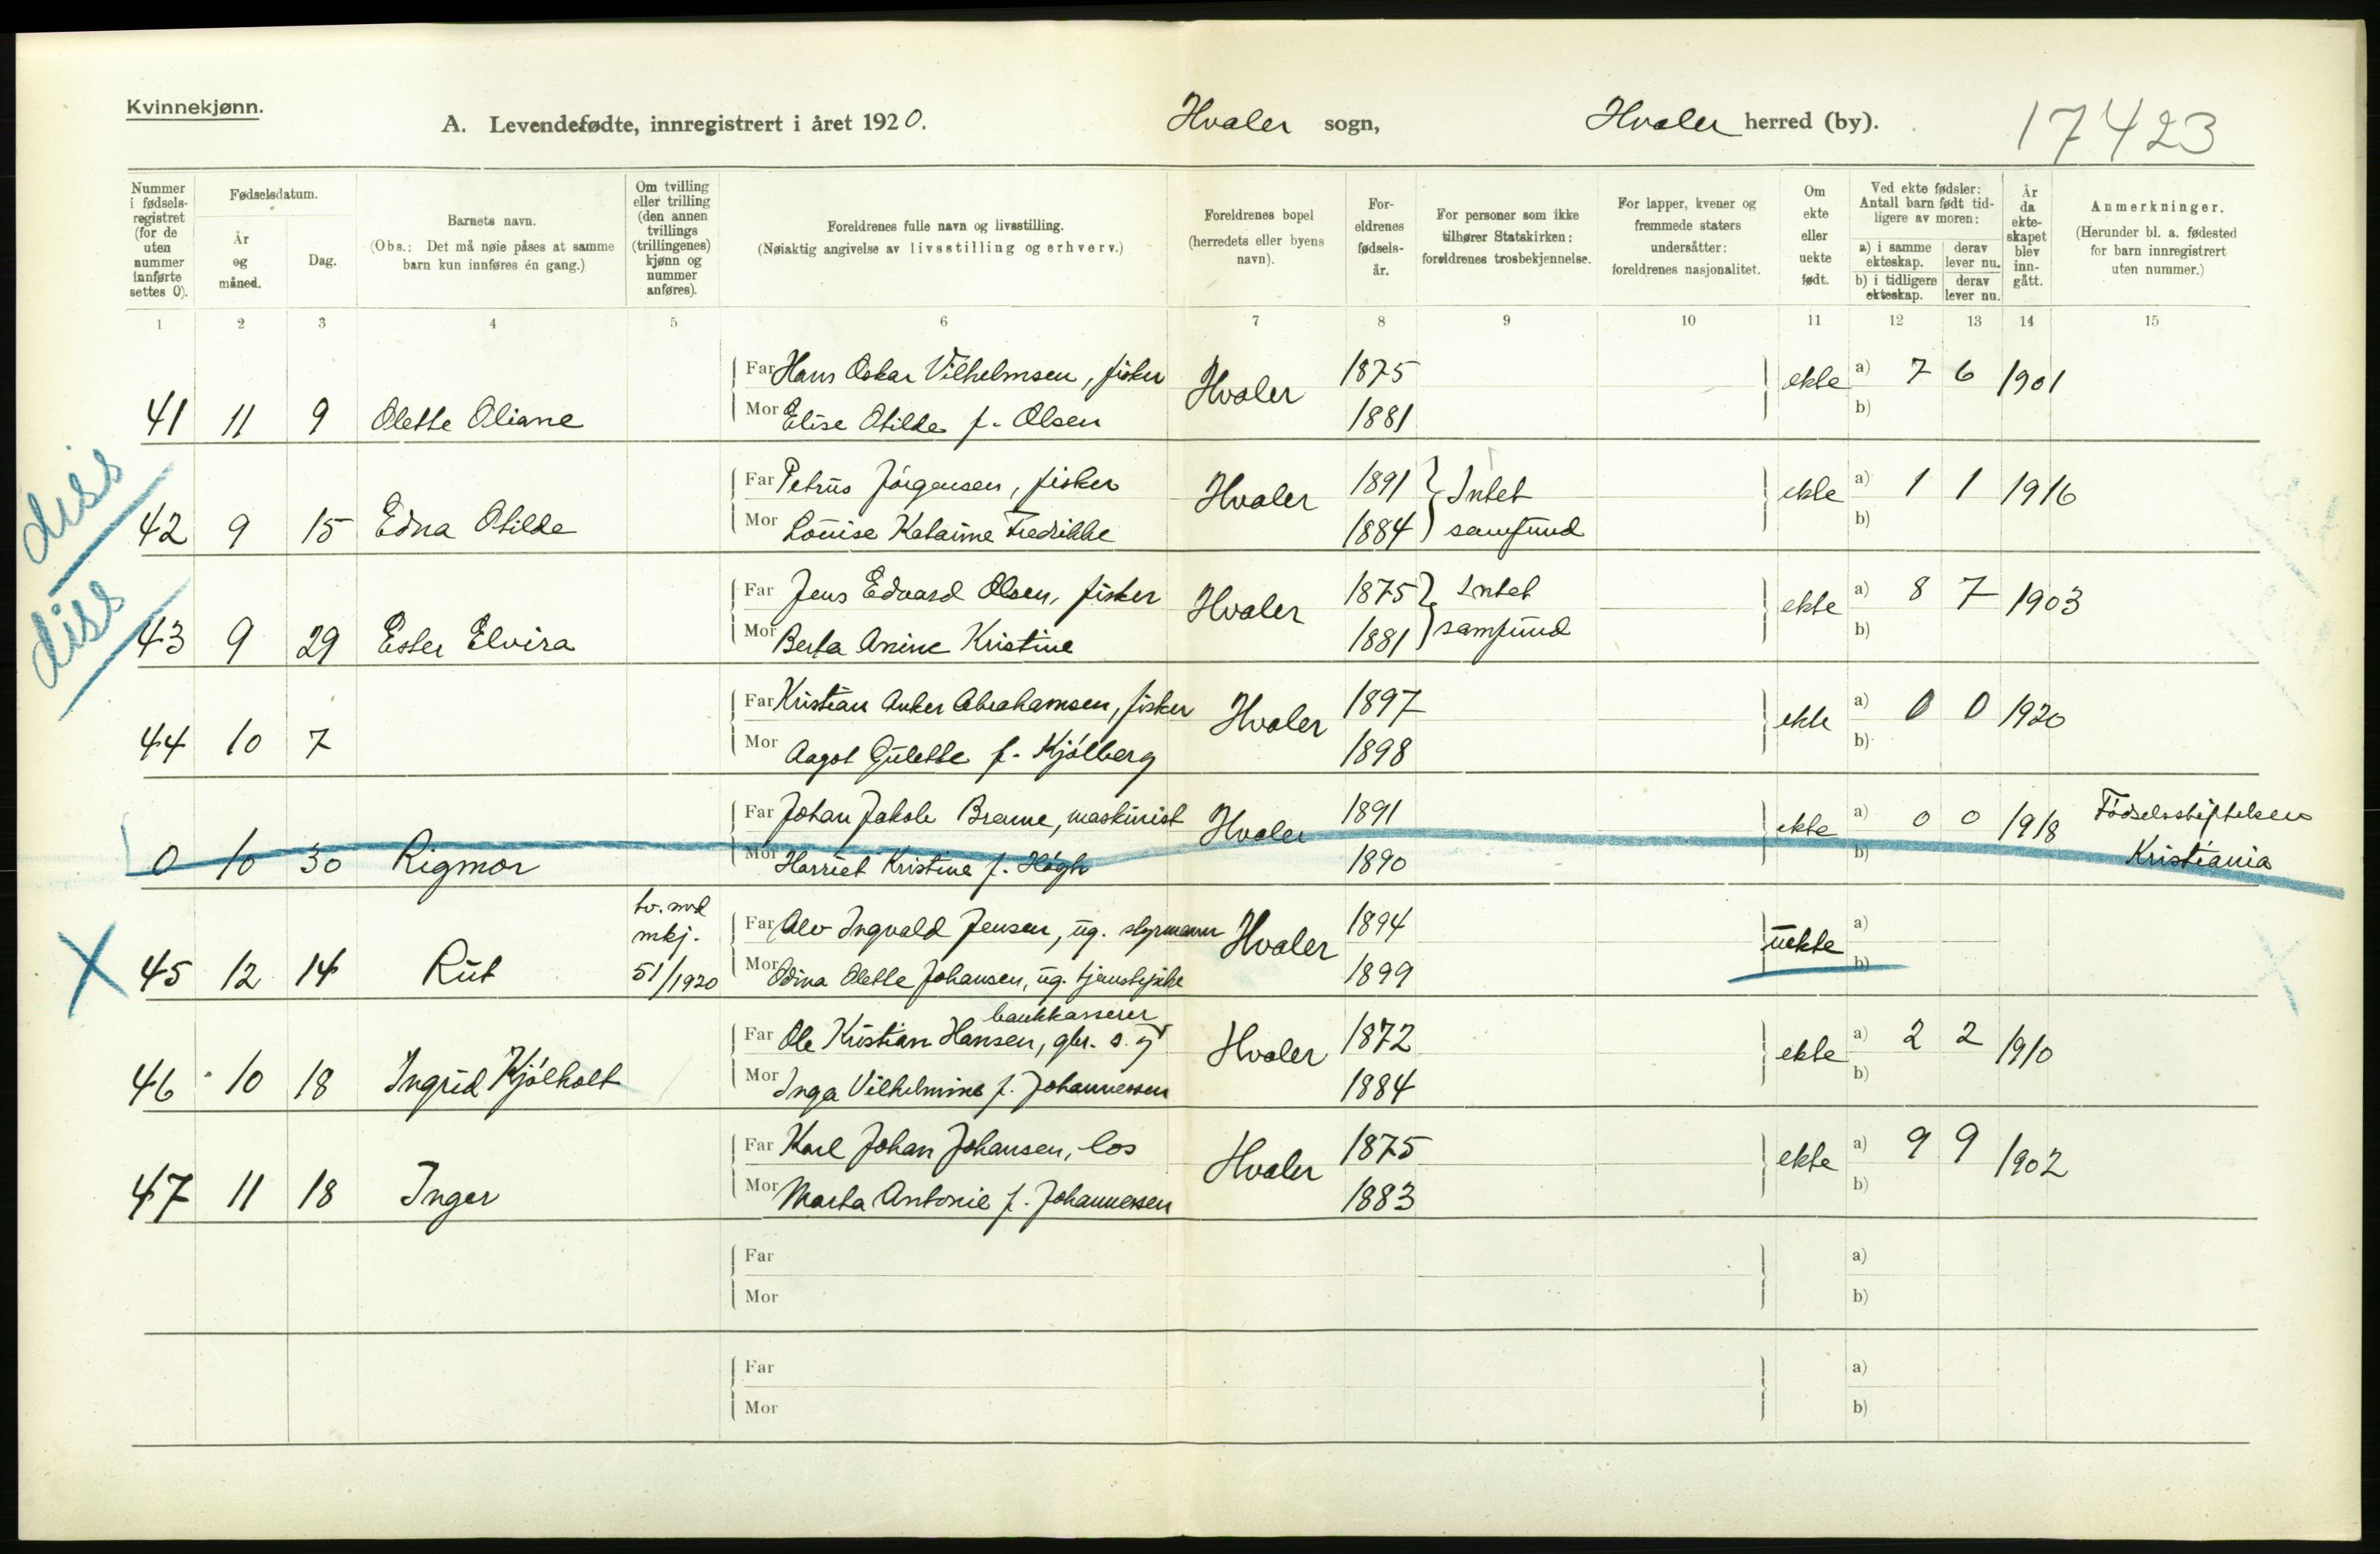 Kvinnekjønn.
A. Levendefødte, innregistrert i året 1920. Hvaler sogn, Hvaler herred (by). 17423
Nummer i fødsels-registret (for de uten nummer innførte settes 0).
Fødselsdatum.
År og måned.
Dag.
Barnets navn.
(Obs.: Det må nøie påses at samme barn kun innføres én gang.)
Om tvilling eller trilling (den annen tvillings (trillingenes) kjønn og nummer anføres).
Foreldrenes fulle navn og livsstilling.
(Nøiaktig angivelse av livsstilling og erhverv.)
Foreldrenes bopel (herredets eller byens navn).
For-eldrenes fødsels-år.
For personer som ikke tilhører Statskirken: foreldrenes trosbekjennelse.
For lapper, kvener og fremmede staters undersåtter: foreldrenes nasjonalitet.
Om ekte eller uekte født.
Ved ekte fødsler: Antall barn født tid-ligere av moren:
a) i samme ekteskap. derav lever nu.
b) i tidligere ekteskap. derav lever nu.
År da ekte-skapet blev inn-gått.
Anmerkninger.
(Herunder bl. a. fødested for barn innregistrert uten nummer.)
1 2 3 4 5 6 7 8 9 10 11 12 13 14 15
Far Hans Oskar Vilhelmsen, fisker Hvaler 1875 ekte a) 7 6 1901
41 11 9 Olette Oliane Mor Elise Otilde f. Olsen 1881 b)
diss
Far Petrus Jörgensen, fisker Hvaler 1891 Intet ekte a) 1 1 1916
42 9 15 Edna Otilde Mor Louise Kataime Fredrikke 1884 samfund b)
diss
Far Jens Edvard Olsen, fisker Hvaler 1875 Intet ekte a) 8 7 1903
43 9 29 Ester Elvira Mor Berta Anine Kristine 1881 samfund b)
Far Kristian Anker Abrahamsen, fisker Hvaler 1897 ekte a) 0 0 1920
44 10 7 Mor Aagot Gulette f. Kjölberg 1898 b)
Far Johan Jakob Breme, maskinist Hvaler 1891 ekte a) 0 0 1918 Födselsstiftelsen
0 10 30 Rigmor Mor Harriet Kristine f. Högh 1890 b) Kristiania
tv. med mkj. 51/1920
Far Alv Ingvald Jensen, ug. styrmann Hvaler 1894 uekte a)
X 45 12 14 Rut Mor Odina Olette Johansen, ug. tjenestepike 1899 b)
bankkasserer
Far Ole Kristian Hansen, gbr. s. og Hvaler 1872 ekte a) 2 2 1910
46 10 18 Ingrid Kjölholt Mor Inga Vilhelmine f. Johannessen 1884 b)
Far Karl Johan Johansen, los Hvaler 1875 ekte a) 9 9 1902
47 11 18 Inger Mor Marta Antonie f. Johannessen 1883 b)
Far a)
Mor b)
Far a)
Mor b)